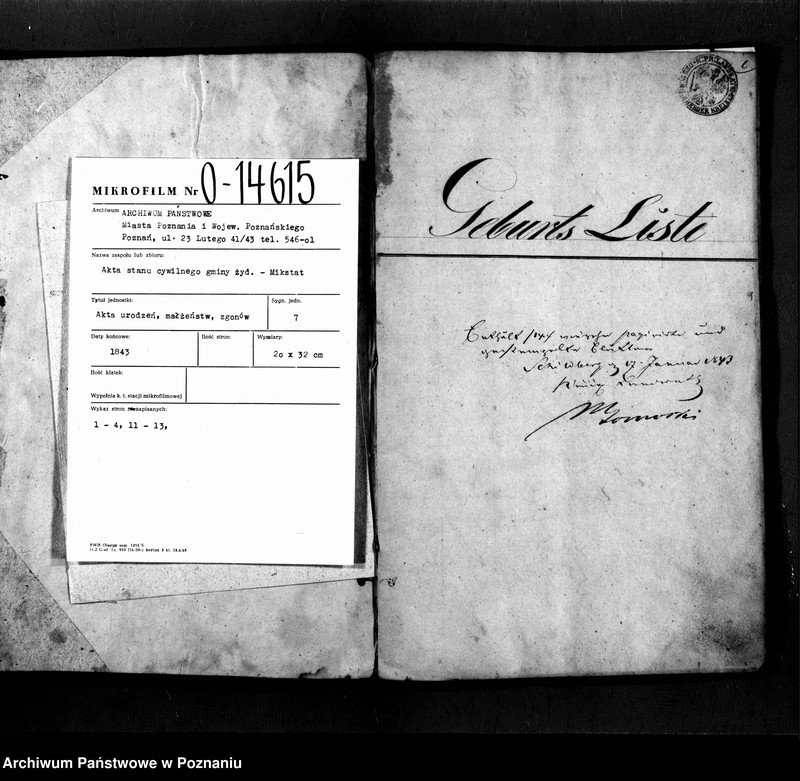 MIKROFILM Nr 0-14615
Archiwum ARCHIWUM PAŃSTWOWE
Miasta Poznania i Wojew. Poznańskiego
Poznań, ul. 23 Lutego 41/43 tel. 546-01
Nazwa zespołu lub zbioru:
Akta stanu cywilnego gminy żyd. - Mikstat
Tytuł jednostki:
Sygn. jedn.
Akta urodzeń, małżeństw, zgonów
7
Daty końcowe:
Ilość stron:
Wymiary:
1843
20 x 32 cm
Ilość klatek:
Wypełnia k. t. stacji mikrofilmowej
Wykaz stron niezapisanych:
1 - 4, 11 - 13,
Geburts Liste
Enthält und
Blätter
Schildberg 17. Januar 1843
Archiwum Państwowe w Poznaniu